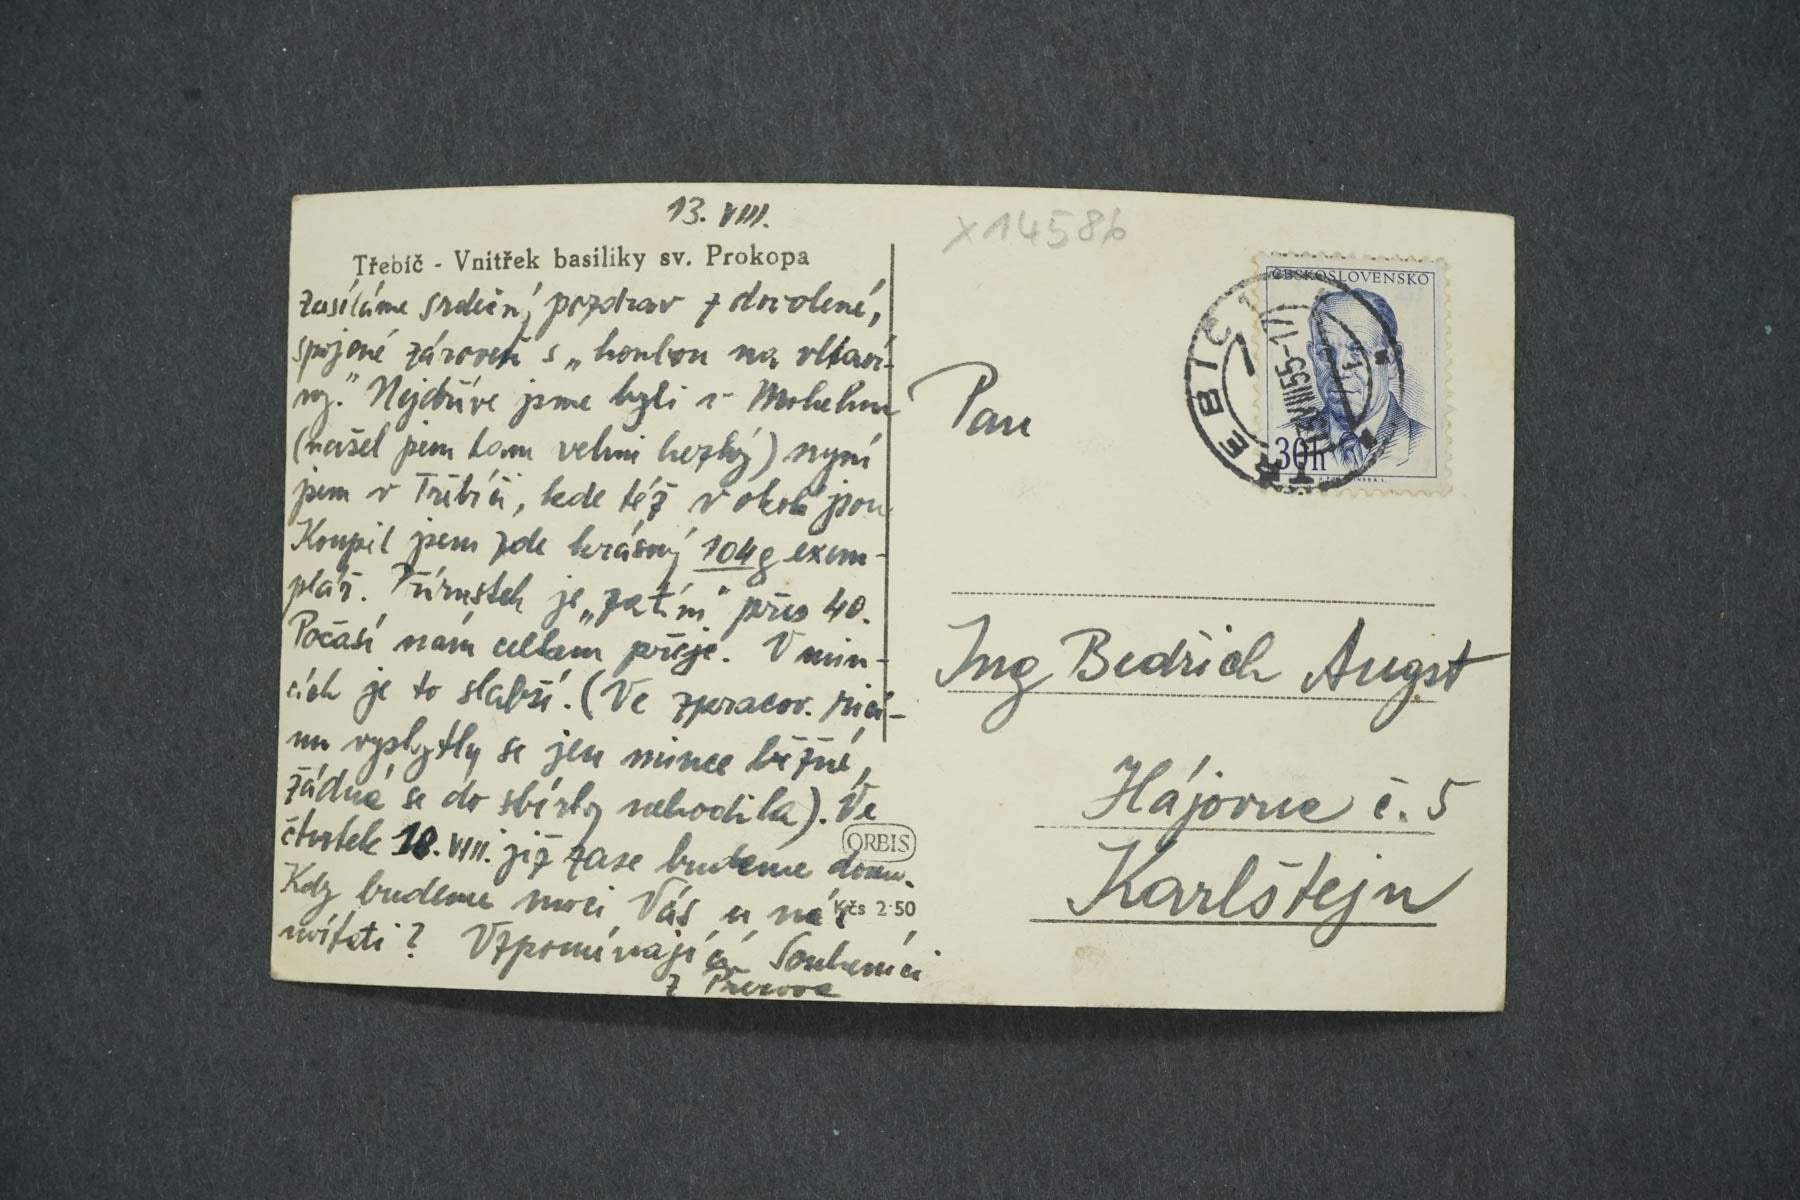 13. VIII.
Třebíč - Vnitřek basiliky sv. Prokopa
Zasíláme srdečný pozdrav z dovolené,
spojené zároveň s „honbou na vltaví-
ny." Nejdříve jsme byli v Mohelnu
(našel jsem tam velmi hezký) nyní
jsem v Třebíči, kde též v okolí jsou.
Koupil jsem zde krásný 104g exem-
plář. Přírustek je „zatím" přes 40.
Počasí nám celkem přeje. V min-
cích je to slabší. (Ve zpracov.
nu vyskytly se jen mince běžné,
žádná se do sbírky nehodila). Ve
čtvrtek 18. VIII. již zase budeme doma.
Kdy budeme moci Vás u nás
uvítati? Vzpomínající Souheníci
z Přerova
ORBIS
Kčs 2·50
x14586
ČESKOSLOVENSKO
30h
TŘEBÍČ 1
VIII55-1
Pan
Ing Bedřich Augst
Hájovna č. 5
Karlštejn